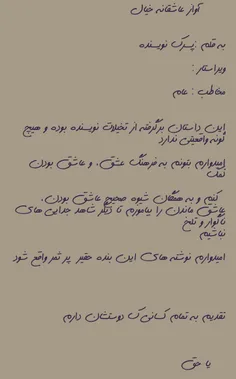 آواز عاشقانه خیال
به قلم : پسرک نویسنده
ویراستار :
مخاطب : عام
این داستان برگرفته از تخیلات نویسنده بوده و هیچ
گونه واقعیتی ندارد
امیدوارم بتونم به فرهنگ عشق، و عاشق بودن
کمک
کنم و به همگان شیوه صحیح عاشق بودن،
عاشق ماندن را بیاموزم تا دیگر شاهد جدایی های
ناگوار و تلخ
نباشیم
امیدوارم نوشته های این بنده حقیر پر ثمر واقع شود
تقدیم به تمام کسانی که دوستشان دارم
یا حق